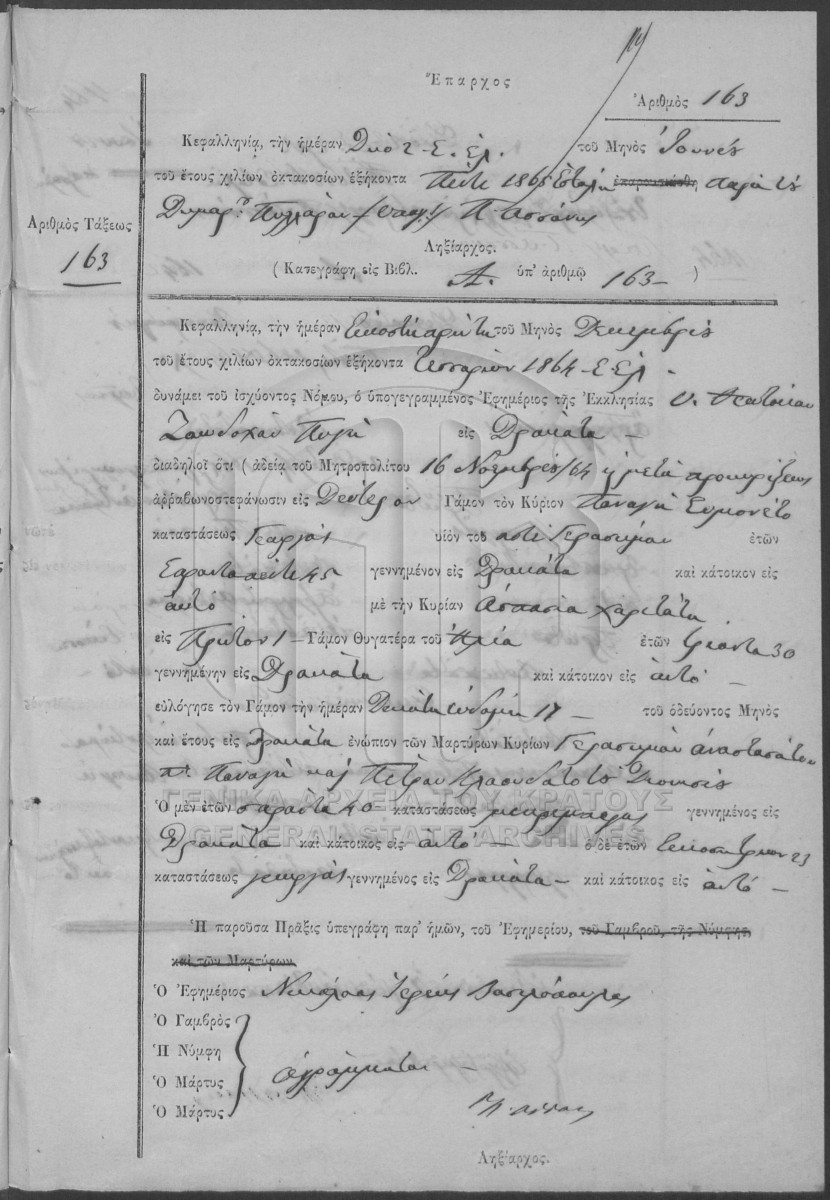 Ἔπαρχος
Ἀριθμὸς 163
Κεφαλληνία, τὴν ἡμέραν Δύο 2 - Ε. Ἑλ. τοῦ Μηνὸς Ἰουνίου
τοῦ ἔτους χιλίων ὀκτακοσίων ἑξήκοντα Πέντε 1865 Ἐστάλη παρὰ τοῦ
Δημάρχ. Πυλλάρου
Ἀριθμὸς Τάξεως
163
Ληξίαρχος.
( Κατεγράφη εἰς Βιβλ. Α. ὑπ' ἀριθμῷ 163 - )
Κεφαλληνία, τὴν ἡμέραν Εἰκοστὴ πρώτη τοῦ Μηνὸς Δεκεμβρίου
τοῦ ἔτους χιλίων ὀκτακοσίων ἑξήκοντα τεσσάρων 1864 - Ε. Ἑλ -
δυνάμει τοῦ ἰσχύοντος Νόμου, ὁ ὑπογεγραμμένος Ἐφημέριος τῆς Ἐκκλησίας Υ. Θεοτόκου
Ζωοδόχου Πηγῆ εἰς Δρακάτα -
διαδηλοῖ ὅτι ( ἀδείᾳ τοῦ Μητροπολίτου 16 Νοεμβρίου /64 ἢ μετὰ προκηρύξεως
ἀῤῥαβωνοστεφάνωσιν εἰς Δεύτερον Γάμον τὸν Κύριον Παναγῆ Σιμονέτο
καταστάσεως Γεωργὸς υἱὸν τοῦ ποτὲ Γερασίμου ἐτῶν
Σαράντα πέντε 45 γεννημένον εἰς Δρακάτα καὶ κάτοικον εἰς
αὐτό μὲ τὴν Κυρίαν Ἀσπασία Χαριτάτη
εἰς Πρῶτον 1 - Γάμον Θυγατέρα τοῦ Ἠλία ἐτῶν τριάντα 30
γεννημένην εἰς Δρακάτα καὶ κάτοικον εἰς αὐτό -
εὐλόγησε τὸν Γάμον τὴν ἡμέραν Δεκάτη ἑβδόμη 17 - τοῦ ὁδεύοντος Μηνὸς
καὶ ἔτους εἰς Δρακάτα ἐνώπιον τῶν Μαρτύρων Κυρίων Γεράσιμον Ἀναστασάτον
π. Παναγῆ καὶ Πέτρον Κλαουδάτο τοῦ Διονυσίου
ΓΕΝΙΚΑ ΑΡΧΕΙΑ ΤΟΥ ΚΡΑΤΟΥΣ
Ὁ μὲν ἐτῶν σαράντα 40 καταστάσεως γεννημένος εἰς
GENERAL STATE ARCHIVES
Δρακάτα καὶ κάτοικος εἰς αὐτό - ὁ δὲ ἐτῶν εἰκοσιτριῶν 23
καταστάσεως γεωργὸς γεννημένος εἰς Δρακάτα - καὶ κάτοικος εἰς αὐτό -
Ἡ παροῦσα Πρᾶξις ὑπεγράφη παρ' ἡμῶν, τοῦ Ἐφημερίου, τοῦ Γαμβροῦ, τῆς Νύμφης,
καὶ τῶν Μαρτύρων
Ὁ Ἐφημέριος Νικόλαος Ἱερεὺς Βασιλόπουλος
Ὁ Γαμβρὸς
Ἡ Νύμφη
Ὁ Μάρτυς ἀγράμματοι -
Ὁ Μάρτυς
Ληξίαρχος.